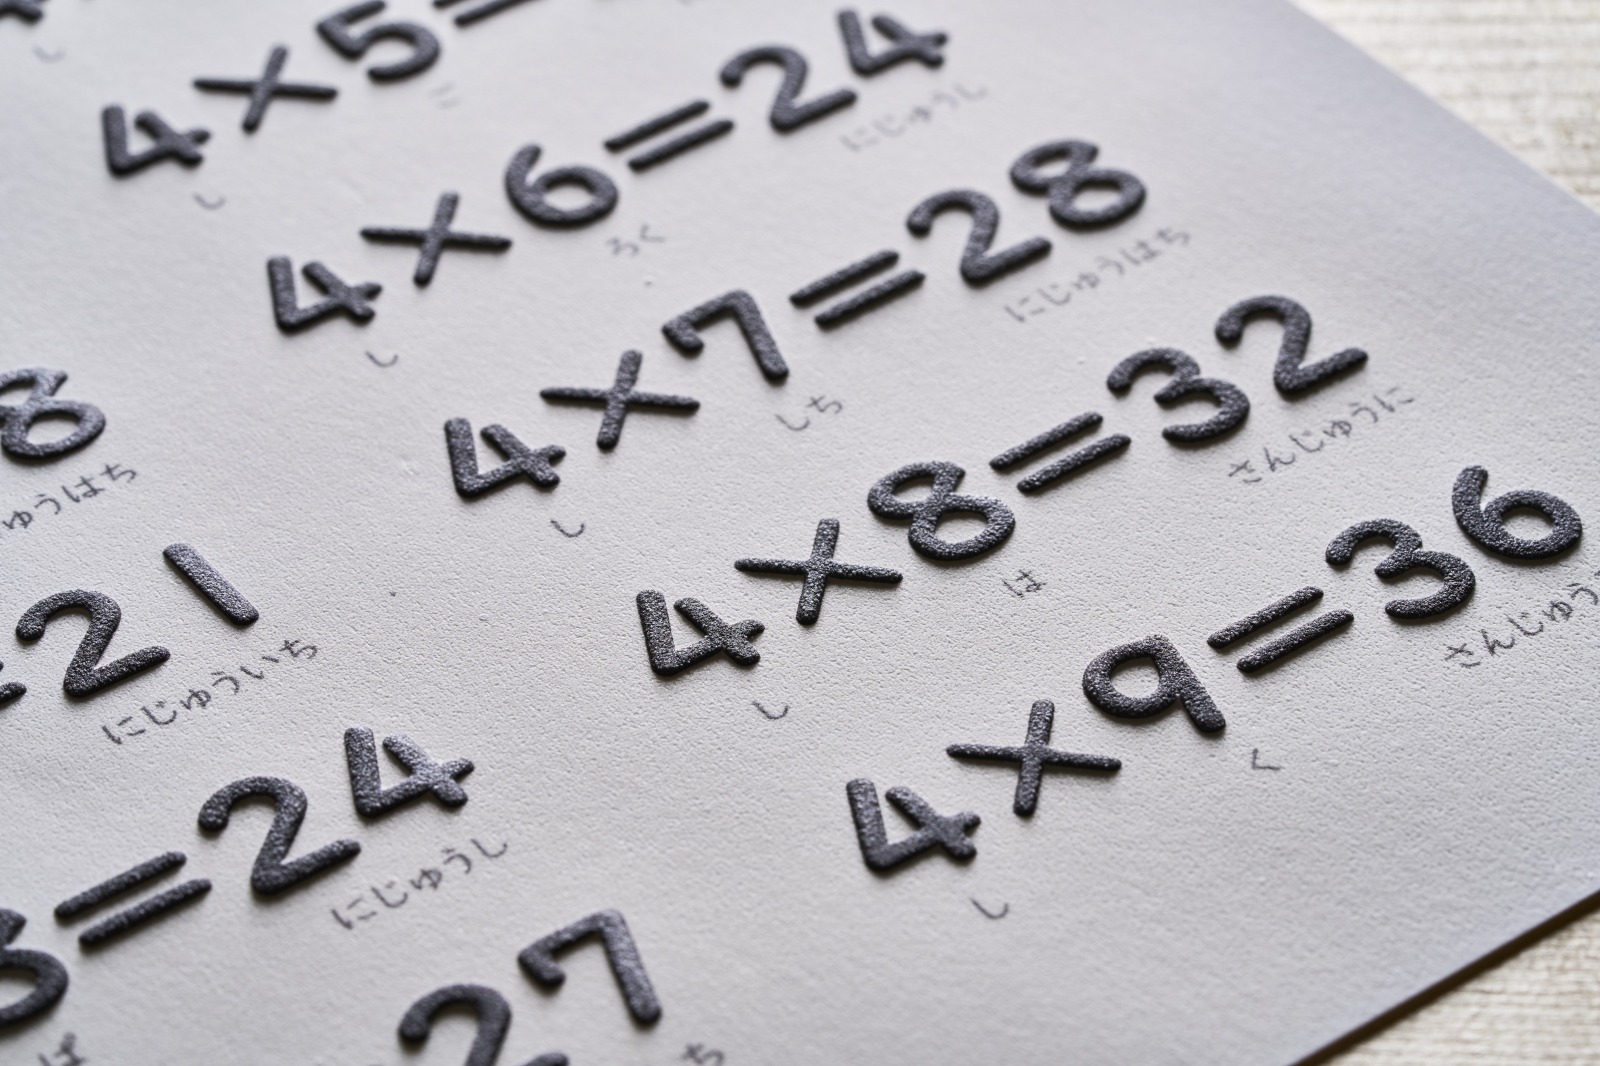 8
ゅうはち
=21
にじゅういち
3=24
ば にじゅうし
27
ち
4×5=
し ご
4×6=24
し ろく にじゅうし
4×7=28
し しち にじゅうはち
4×8=32
し は さんじゅうに
4×9=36
し く さんじゅう